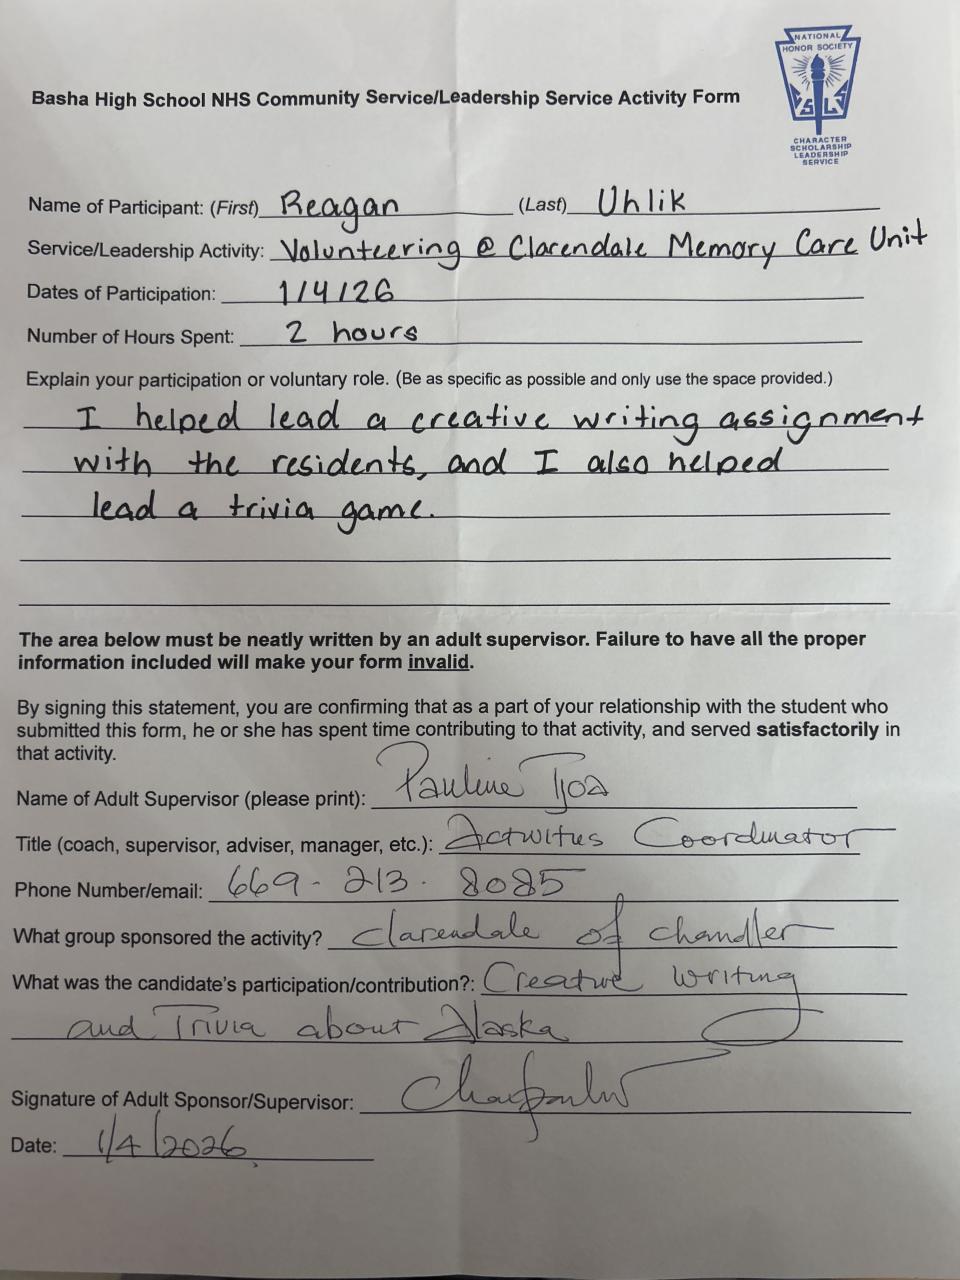 NATIONAL
HONOR SOCIETY
CSLS
CHARACTER
SCHOLARSHIP
LEADERSHIP
SERVICE
Basha High School NHS Community Service/Leadership Service Activity Form
Name of Participant: (First) Reagan (Last) Uhlik
Service/Leadership Activity: Volunteering @ Clarendale Memory Care Unit
Dates of Participation: 1/4/26
Number of Hours Spent: 2 hours
Explain your participation or voluntary role. (Be as specific as possible and only use the space provided.)
I helped lead a creative writing assignment
with the residents, and I also helped
lead a trivia game.
The area below must be neatly written by an adult supervisor. Failure to have all the proper
information included will make your form invalid.
By signing this statement, you are confirming that as a part of your relationship with the student who
submitted this form, he or she has spent time contributing to that activity, and served satisfactorily in
that activity.
Name of Adult Supervisor (please print): Pauline Tjoa
Title (coach, supervisor, adviser, manager, etc.): Activities Coordinator
Phone Number/email: 669-213-8085
What group sponsored the activity? Clarendale of chandler
What was the candidate's participation/contribution?: Creative writing
and Trivia about Alaska
Signature of Adult Sponsor/Supervisor:
Date: 1/4/2026